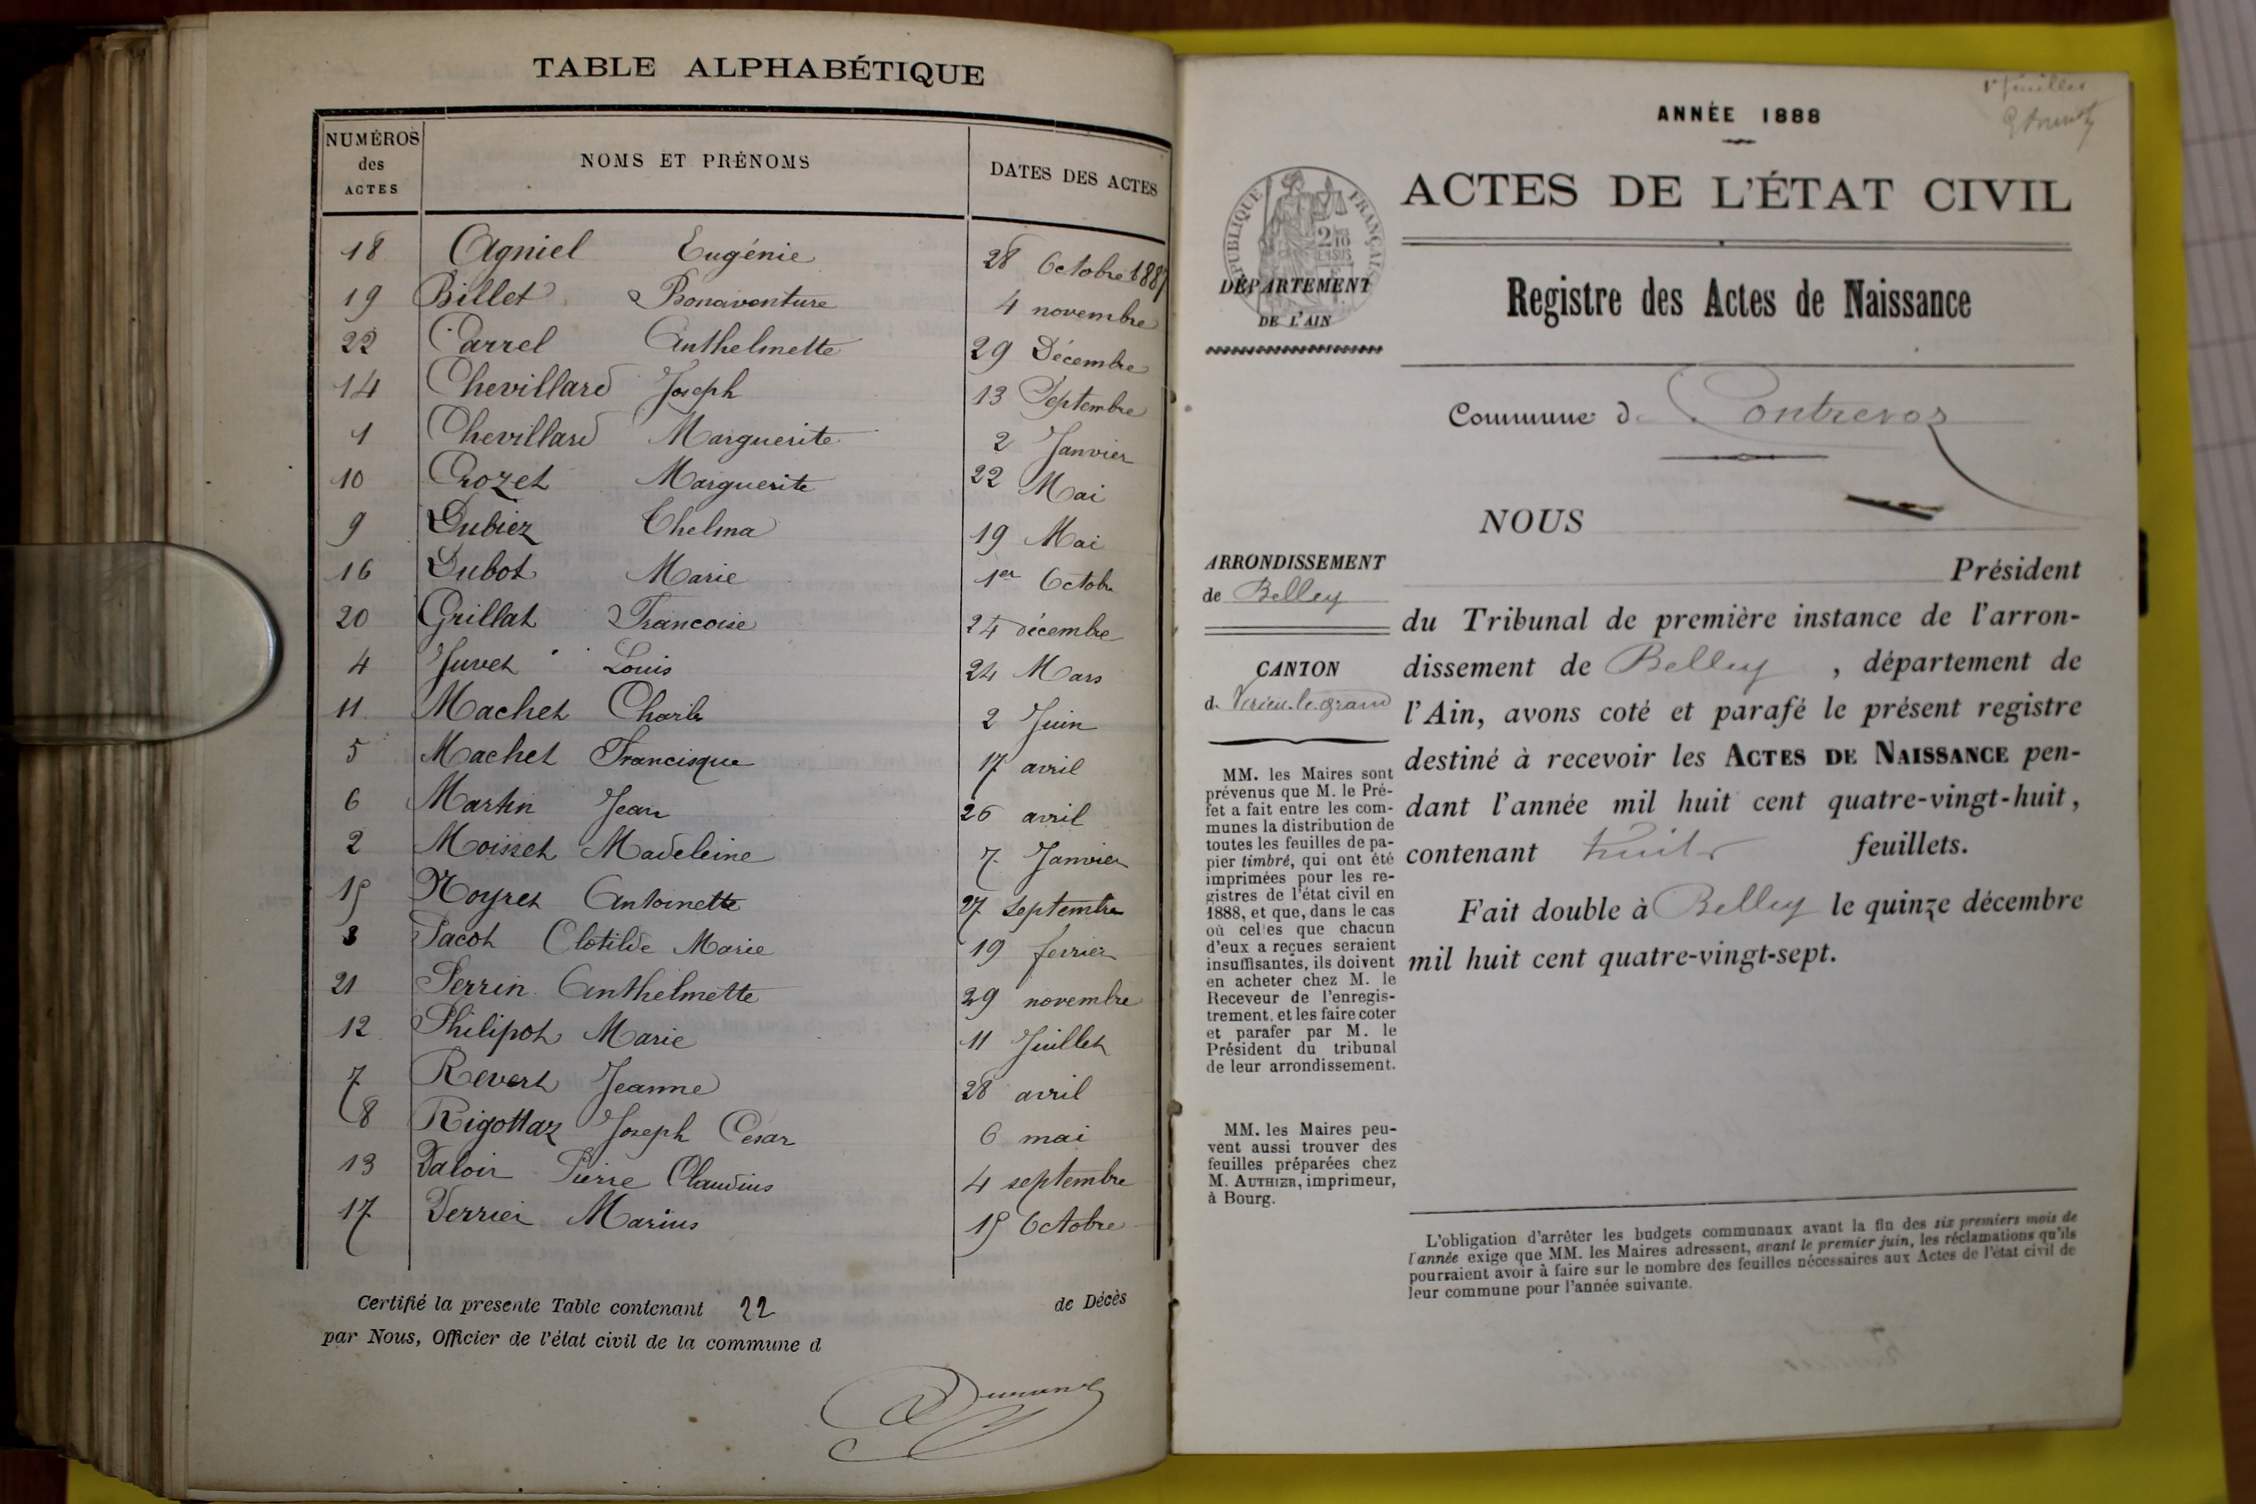 TABLE ALPHABÉTIQUE
NUMÉROS des ACTES NOMS ET PRÉNOMS DATES DES ACTES
18 Agniel Eugénie 28 Octobre 1887
19 Billet Bonaventure 4 novembre
22 Carrel Anthelmette 29 Décembre
14 Chevillard Joseph 13 Septembre
1 Chevillard Marguerite 2 Janvier
10 Crozet Marguerite 22 Mai
9 Dubiez Thelma 19 Mai
16 Dubot Marie 1er Octobre
20 Grillat Francoise 24 décembre
4 Juvet Louis 24 Mars
11 Machet Charles 2 Juin
5 Machet Francisque 17 avril
6 Martin Jean 26 avril
2 Moisset Madeleine 7 Janvier
15 Noyret Antoinette 27 septembre
3 Pacot Clotilde Marie 19 fevrier
21 Perrin Anthelmette 29 novembre
12 Philipot Marie 11 Juillet
7 Revert Jeanne 28 avril
8 Rigottaz Joseph Cesar 6 mai
13 Valoir Pierre Claudius 4 septembre
17 Verrier Marius 15 Octobre
Certifié la presente Table contenant 22 de Décès
par Nous, Officier de l'état civil de la commune d
feuilles
ANNÉE 1888
RÉPUBLIQUE FRANÇAISE
ACTES DE L'ÉTAT CIVIL
DÉPARTEMENT
DE L'AIN
Registre des Actes de Naissance
Commune de Contrevoz
NOUS
Président
du Tribunal de première instance de l'arron-
dissement de Belley, département de
l'Ain, avons coté et parafé le présent registre
destiné à recevoir les ACTES DE NAISSANCE pen-
dant l'année mil huit cent quatre-vingt-huit,
contenant huit feuillets.
Fait double à Belley le quinze décembre
mil huit cent quatre-vingt-sept.
ARRONDISSEMENT
de Belley
CANTON
d. Virieu-le-grand
MM. les Maires sont
prévenus que M. le Pré-
fet a fait entre les com-
munes la distribution de
toutes les feuilles de pa-
pier timbré, qui ont été
imprimées pour les re-
gistres de l'état civil en
1888, et que, dans le cas
où celles que chacun
d'eux a reçues seraient
insuffisantes, ils doivent
en acheter chez M. le
Receveur de l'enregis-
trement, et les faire coter
et parafer par M. le
Président du tribunal
de leur arrondissement.
MM. les Maires peu-
vent aussi trouver des
feuilles préparées chez
M. AUTHIER, imprimeur,
à Bourg.
L'obligation d'arrêter les budgets communaux avant la fin des six premiers mois de
l'année exige que MM. les Maires adressent, avant le premier juin, les réclamations qu'ils
pourraient avoir à faire sur le nombre des feuilles nécessaires aux Actes de l'état civil de
leur commune pour l'année suivante.